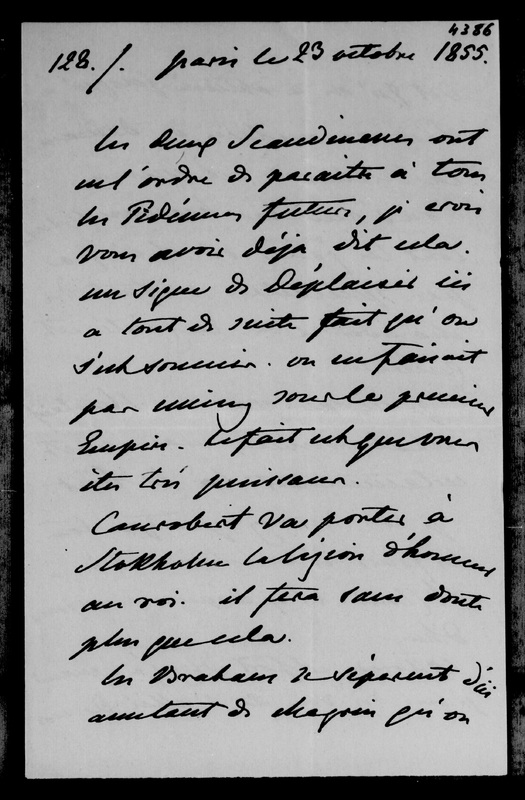 4386
128. /. paris le 23 octobre 1855.
les deux Scandinaves ont
eu l'ordre de paraitre à tous
les futurs, je crois
vous avoir déja dit cela.
un signe de déplaisir ici
a tout de suite fait qu'on
s'est soumis. on ne faisait
par mieux sous le premier
Empire. le fait est que vous
êtes très puissans.
Canrobert va porter à
Stokholm la légion d'honneur
au roi. il fera sans doute
plus que cela.
les Brabant se séparent d'ici
autant de chagrin qu'on